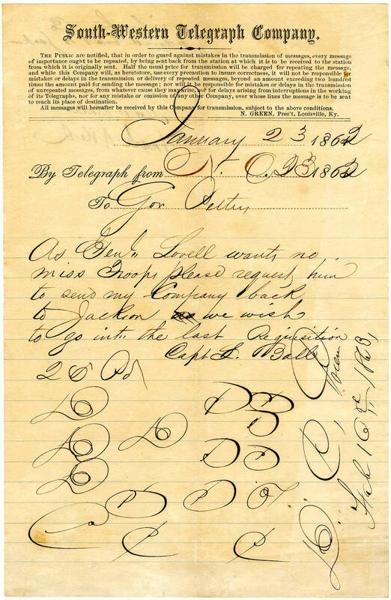 South-Western Telegraph Company.
The Public are notified, that in order to guard against mistakes in the transmission of messages, every message
of importance ought to be repeated, by being sent back from the station at which it is to be received to the station
from which it is originally sent. Half the usual price for transmission will be charged for repeating the message,
and while this Company will, as heretofore, use every precaution to insure correctness, it will not be responsible for
mistakes or delays in the transmission or delivery of repeated messages, beyond an amount exceeding two hundred
times the amount paid for sending the message; nor will it be responsible for mistakes or delays in the transmission
of unrepeated messages, from whatever cause they may arise, nor for delays arising from interruptions in the working
of its Telegraphs, nor for any mistake or omission of any other Company, over whose lines the message is to be sent
to reach its place of destination.
All messages will hereafter be received by this Company for transmission, subject to the above conditions.
N. GREEN, Pres't, Louisville, Ky.
January 23 1862
By Telegraph from N. O. 23 1862
To Gov Pettus
As Genl Lovell wants no
miss Troops please request him
to send my Company back
to Jackson as we wish
to go into the last Requisition
Capt L. Ball
26 Pd
Feb 16th 1863